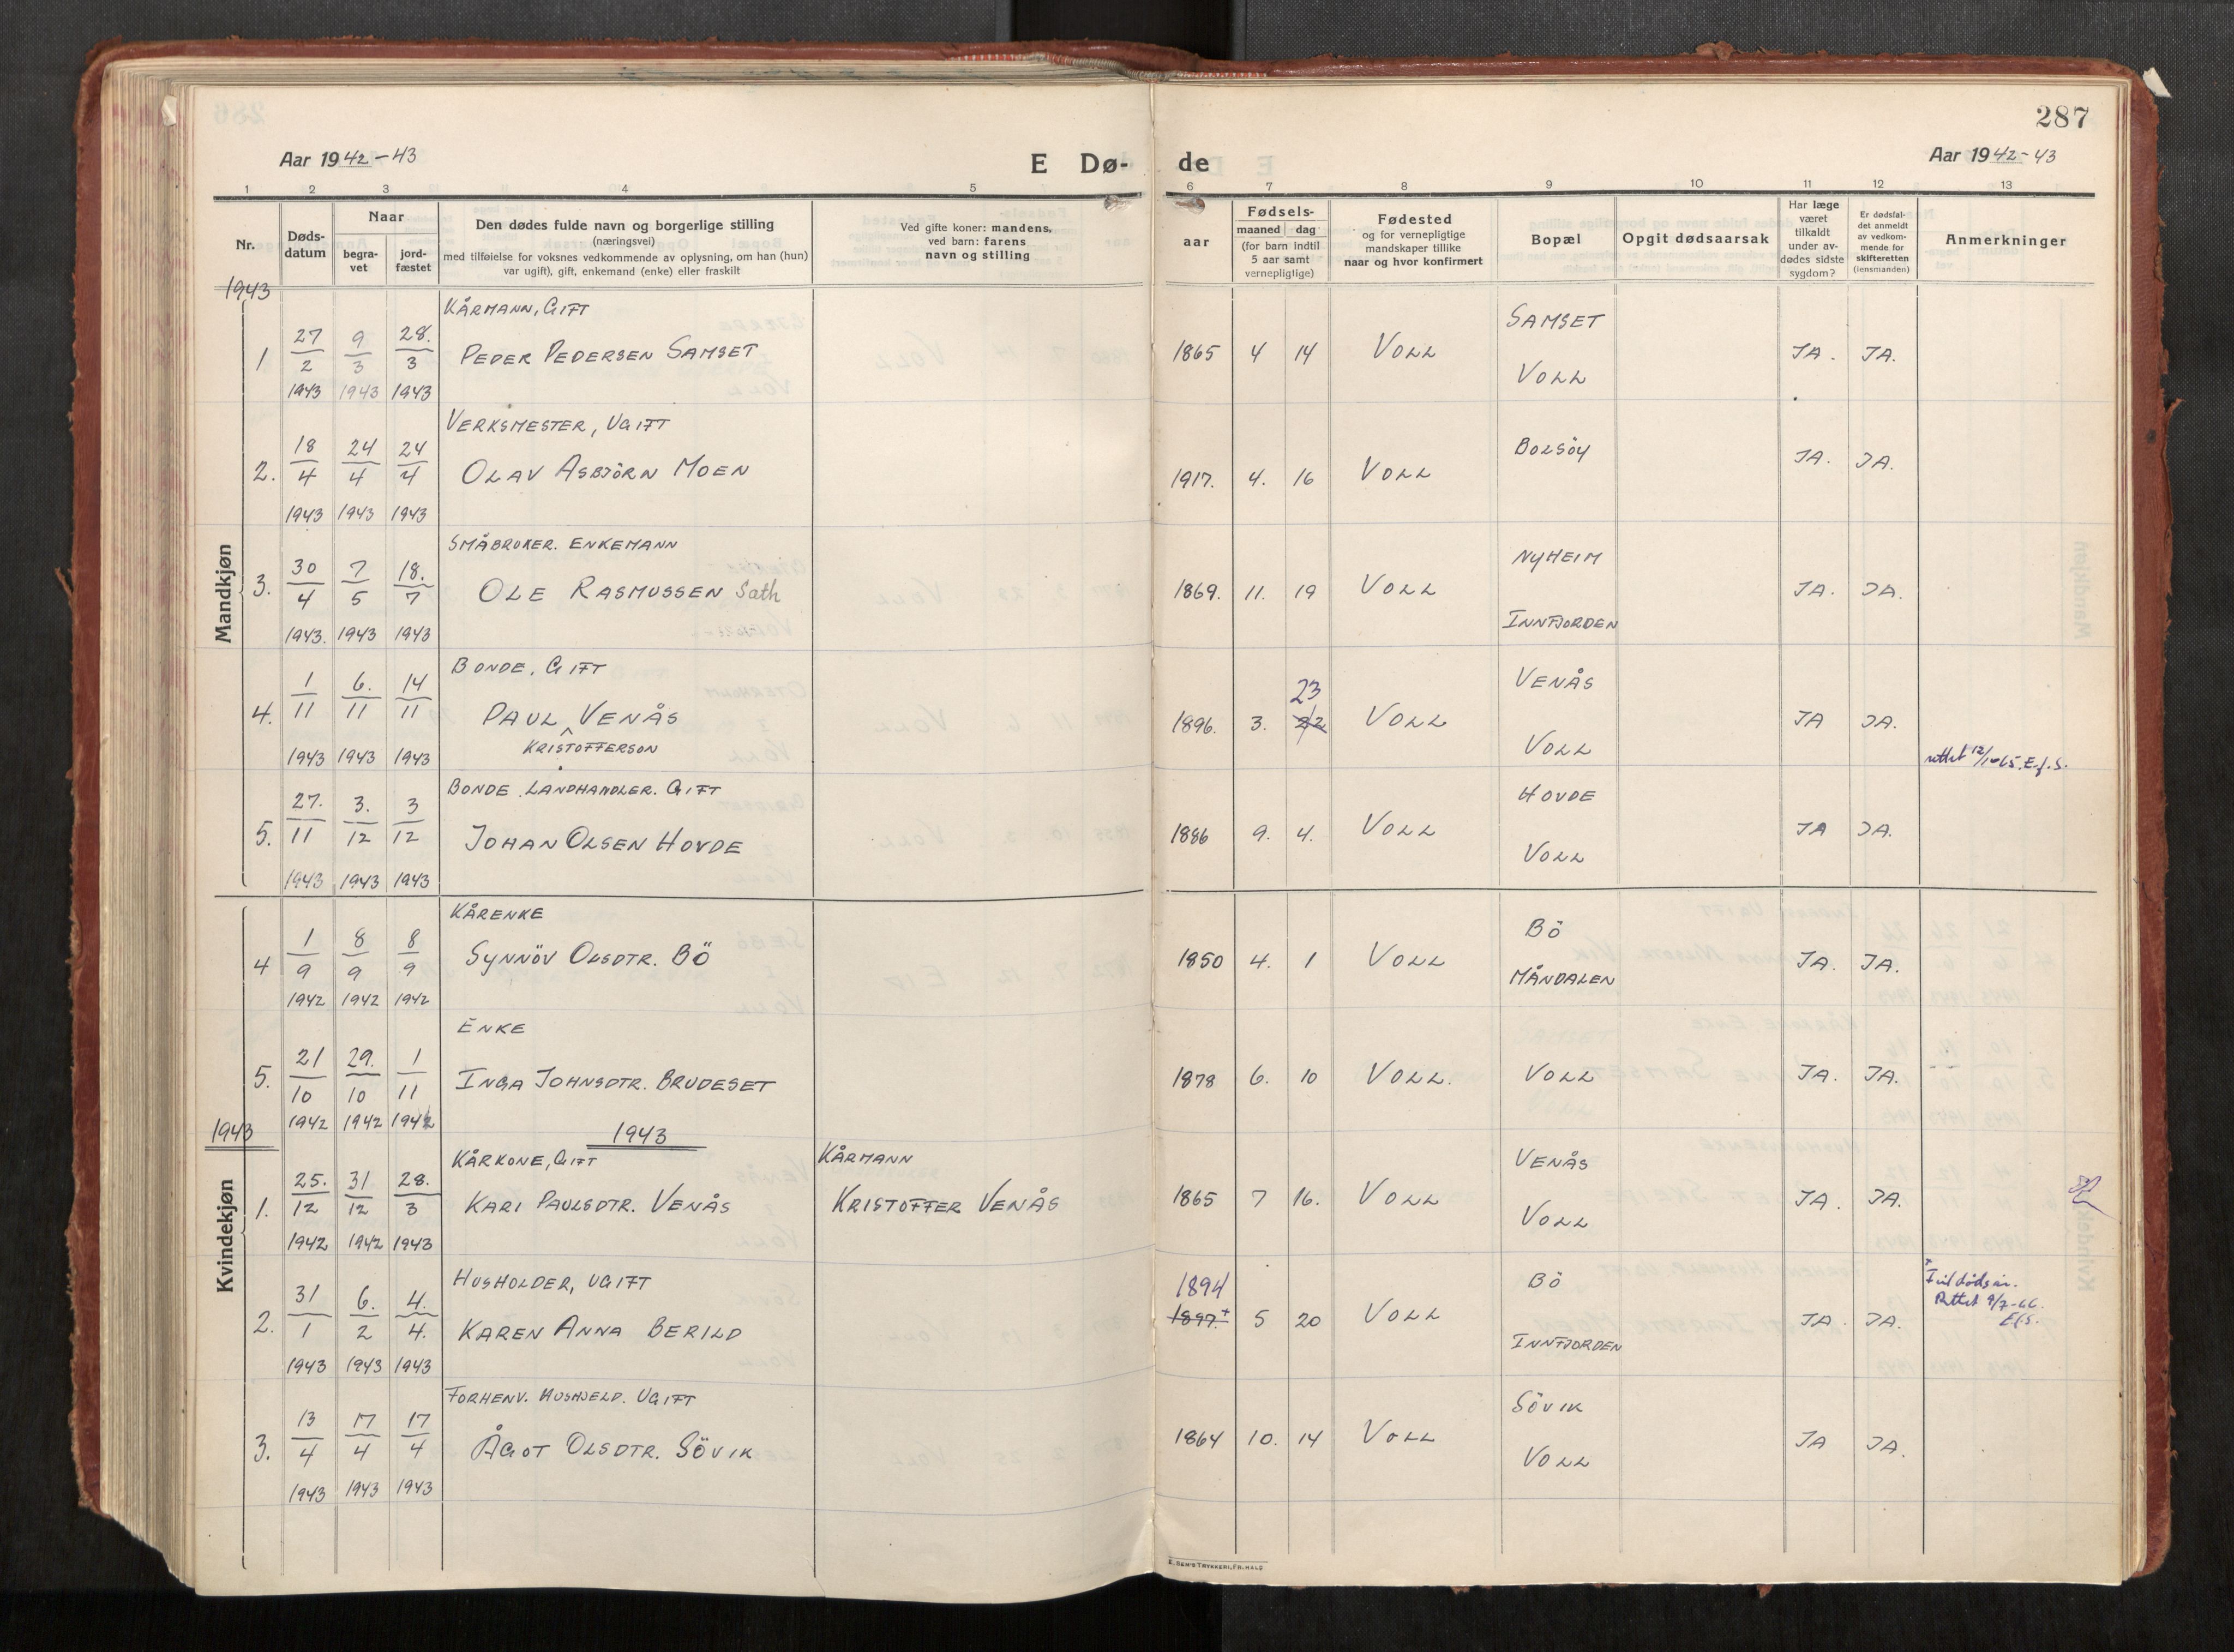 287
Aar 1942-43
E Dø-
de
Aar 1942-43
1 2 3 4 5 6 7 8 9 10 11 12 13
Nr.
Døds-
datum
Naar
begra-
vet
jord-
fæstet
Den dødes fulde navn og borgerlige stilling
(næringsvei)
med tilføielse for voksnes vedkommende av oplysning, om han (hun)
var ugift), gift, enkemand (enke) eller fraskilt
Ved gifte koner: mandens,
ved barn: farens
navn og stilling
aar
Fødsels-
maaned dag
(for barn indtil
5 aar samt
vernepligtige)
Fødested
og for vernepligtige
mandskaper tillike
naar og hvor konfirmert
Bopæl
Opgit dødsaarsak
Har læge
været
tilkaldt
under av-
dødes sidste
sygdom?
Er dødsfal-
det anmeldt
av vedkom-
mende for
skifteretten
(lensmanden)
Anmerkninger
Mandkjøn
1943
KÅRMANN, GIFT
SAMSET
1 27/2 9/3 28./3 PEDER PEDERSEN SAMSET 1865 4 14 VOLL JA. JA.
VOLL
1943 1943 1943
VERKSMESTER, UGIFT
BOLSÖY
2. 18/4 24/4 24/4 OLAV ASBJÖRN MOEN 1917. 4. 16 VOLL JA. JA.
1943 1943 1943
SMÅBRUKER. ENKEMANN
NYHEIM
3. 30/4 7/5 18./7 OLE RASMUSSEN Sath 1869. 11. 19 VOLL JA. JA.
INNFJORDEN
1943. 1943 1943
BONDE, GIFT
VENÅS
23
4. 1/11 6./11 14/11 PAUL VENÅS 1896. 3. 22 VOLL JA JA.
KRISTOFFERSON
VOLL
1943 1943 1943
rettet 12/1-65. E.f.S.
BONDE. LANDHANDLER. GIFT
HOVDE
5. 27./11 3./12 3/12 JOHAN OLSEN HOVDE 1886 9. 4. VOLL JA JA.
VOLL
1943 1943 1943
Kvindekjøn
KÅRENKE
BÖ
4 1/9 8/9 8/9 SYNNÖV OLSDTR. BÖ 1850 4. 1 VOLL JA. JA.
MÅNDALEN
1942 1942 1942
ENKE
5. 21/10 29./10 1/11 INGA JOHNSDTR. BRUDESET 1878 6. 10 VOLL. VOLL JA. JA.
1942 1942 1942
1943
1943
KÅRKONE, GIFT KÅRMANN
VENÅS
1. 25./12 31/12 28./3 KARI PAULSDTR. VENÅS KRISTOFFER VENÅS 1865 7 16. VOLL JA. JA.
VOLL
1942 1942 1943
HUSHOLDER, UGIFT
BÖ
1894
2. 31/1 6./2 4./4. KAREN ANNA BERILD 1897.+ 5 20 VOLL JA JA.
INNFJORDEN
1943 1943 1943
Rettet 9/7-66.
EfS.
FORHENV. HUSHJELP. UGIFT
SÖVIK
3. 13/4 17/4 17/4 ÅGOT OLSDTR. SÖVIK 1864 10. 14 VOLL JA JA.
VOLL
1943 1943 1943
E. SEM'S TRYKKERI, FR. HALD